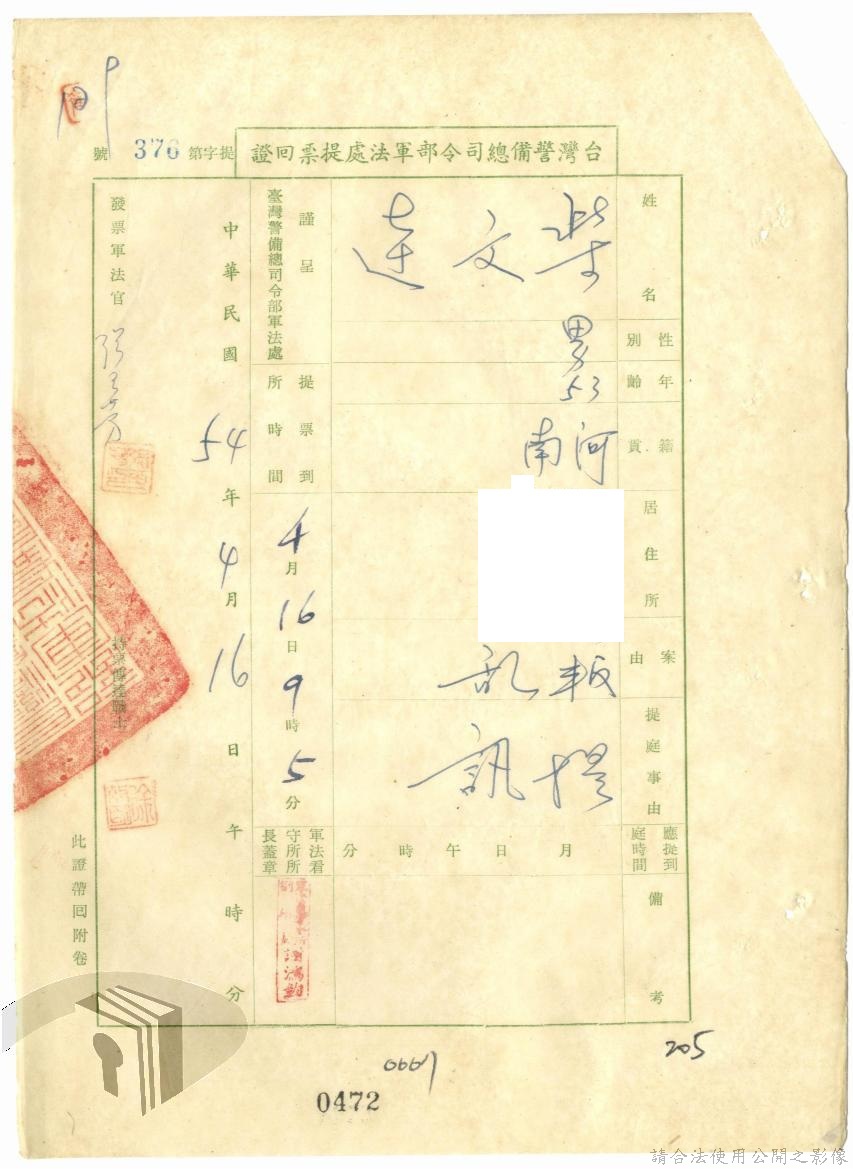 台灣警備總司令部軍法處提票回證
提字第 376 號
姓名 柴文達
性別 男
年齡 53
籍貫 河南
居住所
案由 叛亂
提庭事由 提訊
應提到庭時間 月 日 午 時 分
備考
謹呈
臺灣警備總司令部軍法處
提票到所時間 4月16日9時5分
軍法看守所所長蓋章
中華民國54年4月16日 午 時 分
發票軍法官
持票傳達戰士
此證帶回附卷
205
0472
請合法使用公開之影像